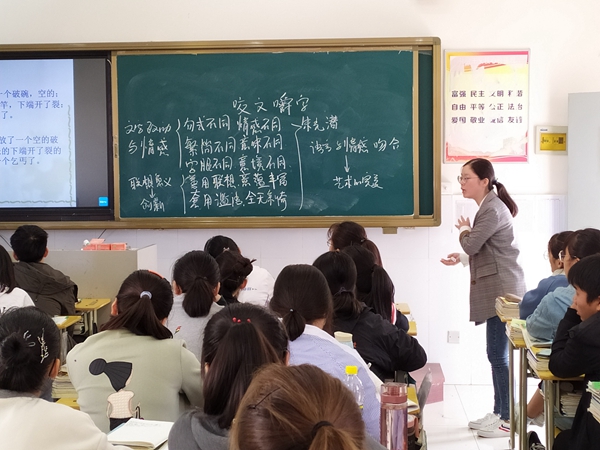 个破碗，空的；
竿，下端开了裂：
放了一个空的破
的下端开了裂的
一个乞丐了。
咬文嚼字
文字改动
与情感
句式不同 情感不同
繁简不同 意味不同
字眼不同 意境不同
联想意义
创新
善用联想 意蕴丰富
套用滥调 全无
朱光潜
语言与情感 吻合
艺术的完美
富强 民主 文明 和谐
自由 平等 公正 法治
爱国 敬业 诚信 友善